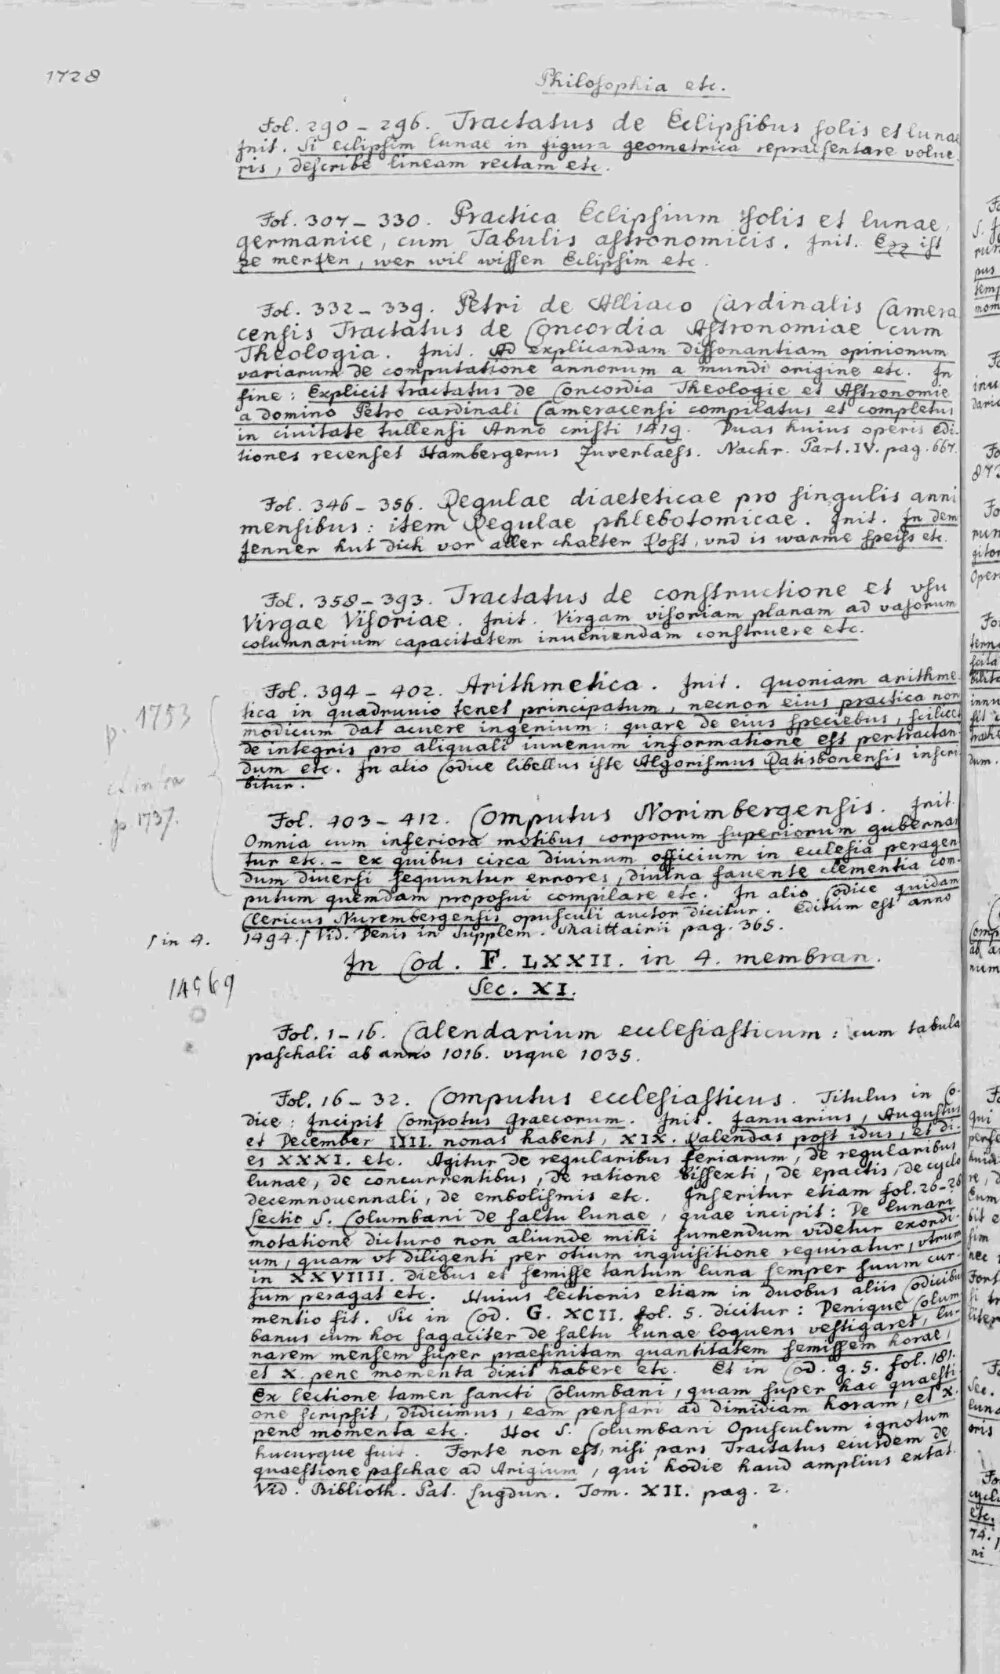 1728
Philosophia etc.
Fol. 290 – 296. Tractatus de Eclipsibus solis et lunae
Init. Si eclipsim lunae in figura geometrica repraesentare volue
ris, describe lineam rectam etc.
Fol. 307 – 330. Practica Eclipsium solis et lunae,
germanice, cum Tabulis astronomicis. Init. Ezz ist
ze merken, wer wil wissen Eclipsim etc.
Fol. 332 – 339. Petri de Alliaco Cardinalis Camera
censis Tractatus de Concordia Astronomiae cum
Theologia. Init. Ad explicandam dissonantiam opinionum
variarum de computatione annorum a mundi origine etc. In
fine: Explicit tractatus de Concordia Theologie et Astronomie
a domino Petro cardinali Cameracensi compilatus et completus
in civitate tullensi Anno cristi 1419. Duas huius operis edi-
tiones recenset Hambergerus Zuverlaess. Nachr. Part. IV. pag. 667.
Fol. 346 – 356. Regulae diaeteticae pro singulis anni
mensibus: item Regulae phlebotomicae. Init. In dem
Jenner hut dich vor aller chalter Cost, vnd is warme speiss etc.
Fol. 358 – 393. Tractatus de constructione et usu
Virgae Visoriae. Init. Virgam visoriam planam ad vasorum
columnarium capacitatem inveniendam construere etc.
Fol. 394 – 402. Arithmetica. Init. Quoniam arithme
tica in quadruvio tenet principatum, necnon eius practica non
modicum dat acuere ingenium: quare de eius speciebus, scilicet
de integris pro aliquali iuvenum informatione est pertractan-
dum etc. In alio Codice libellus iste Algorismus Ratisbonensis inscri
bitur.
p. 1753
et infra
p. 1737.
Fol. 403 – 412. Computus Norimbergensis. Init.
Omnia cum inferiora motibus corporum superiorum guberna
tur etc. – ex quibus circa divinum officium in ecclesia peragen
dum diversi sequuntur errores, divina favente clementia com-
putum quemdam proposui compilare etc. In alio Codice quidam
Clericus Nurembergensis opusculi auctor dicitur. Editum est anno
ſ in 4.
1494. ſ Vid. Denis in Supplem. Maittairii pag. 365.
In Cod. F. LXXII. in 4. membran.
Sec. XI.
14569
Fol. 1 – 16. Calendarium ecclesiasticum: cum tabula
paschali ab anno 1016. usque 1035.
Fol. 16 – 32. Computus ecclesiasticus. Titulus in Co-
dice: Incipit Compotus Graecorum. Init. Januarius, Augustus
et December IIII. nonas habent, XIX. Kalendas post idus, et di-
es XXXI. etc. Agitur de regularibus feriarum, de regularibus
lunae, de concurrentibus, de ratione bissexti, de epactis, de cyclo
decemnouennali, de embolismis etc. Inseritur etiam fol. 26–28
Lectio S. Columbani de saltu lunae, quae incipit: De lunari
motatione dicturo non aliunde mihi sumendum videtur exordi-
um, quam ut diligenti per otium inquisitione requiratur, utrum
in XXVIIII. diebus et semisse tantum luna semper suum cur-
sum peragat etc. Huius lectionis etiam in duobus aliis Codicibus
mentio fit. Sic in Cod. G. XCII. fol. 5. dicitur: Denique Colum
banus cum hoc sagaciter de saltu lunae loquens vestigaret, lu-
narem mensem super praefinitam quantitatem semissem horae,
et X. pene momenta dixit habere etc. Et in Cod. g. 5. fol. 181.
Ex lectione tamen sancti Columbani, quam super hac quaesti
one scripsit, didicimus, eam pensari ad dimidiam horam, et X.
pene momenta etc. Hoc S. Columbani Opusculum ignotum
hucusque fuit. Forte non est, nisi pars Tractatus eiusdem de
quaestione paschae ad Arigium, qui hodie haud amplius extat.
Vid. Biblioth. Pat. Lugdun. Tom. XII. pag. 2.